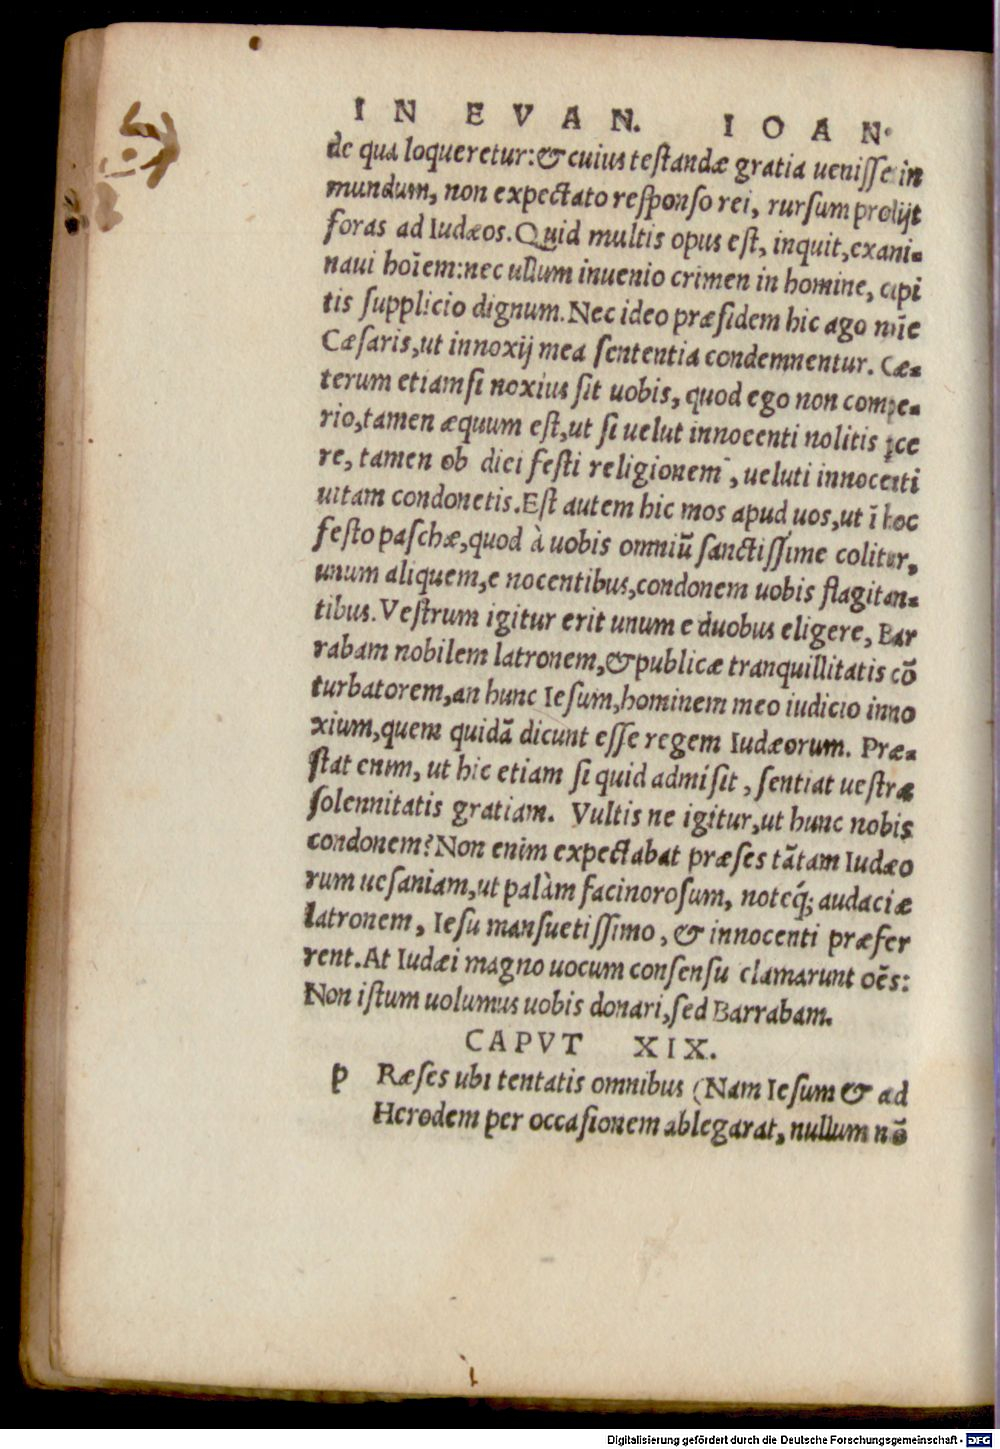 IN EVAN. IOAN.
de qua loqueretur: & cuius testandæ gratia uenisset in
mundum, non expectato responso rei, rursum prodijt
foras ad Iudæos. Quid multis opus est, inquit, exani-
naui hoīem: nec ullum inuenio crimen in homine, capi
tis supplicio dignum. Nec ideo præsidem hic ago nūc
Cæsaris, ut innoxij mea sententia condemnentur. Cæ-
terum etiamsi noxius sit uobis, quod ego non compe-
rio, tamen æquum est, ut si uelut innocenti nolitis ꝑce
re, tamen ob diei festi religionem, ueluti innocenti
uitam condonetis. Est autem hic mos apud uos, ut ī hoc
festo paschæ, quod à uobis omniū sanctissime colitur,
unum aliquem, e nocentibus, condonem uobis flagitan-
tibus. Vestrum igitur erit unum e duobus eligere, Bar
rabam nobilem latronem, & publicæ tranquillitatis cō
turbatorem, an hunc Iesum, hominem meo iudicio inno
xium, quem quidā dicunt esse regem Iudæorum. Præ-
stat enim, ut hic etiam si quid admisit, sentiat uestræ
solennitatis gratiam. Vultis ne igitur, ut hunc nobis
condonem? Non enim expectabat præses tātam Iudæo
rum uesaniam, ut palàm facinorosum, noteq́; audaciæ
latronem, Iesu mansuetissimo, & innocenti præfer
rent. At Iudæi magno uocum consensu clamarunt oēs:
Non istum uolumus uobis donari, sed Barrabam.
CAPVT XIX.
p Ræses ubi tentatis omnibus (Nam Iesum & ad
Herodem per occasionem ablegarat, nullum nō
Digitalisierung gefördert durch die Deutsche Forschungsgemeinschaft - DFG